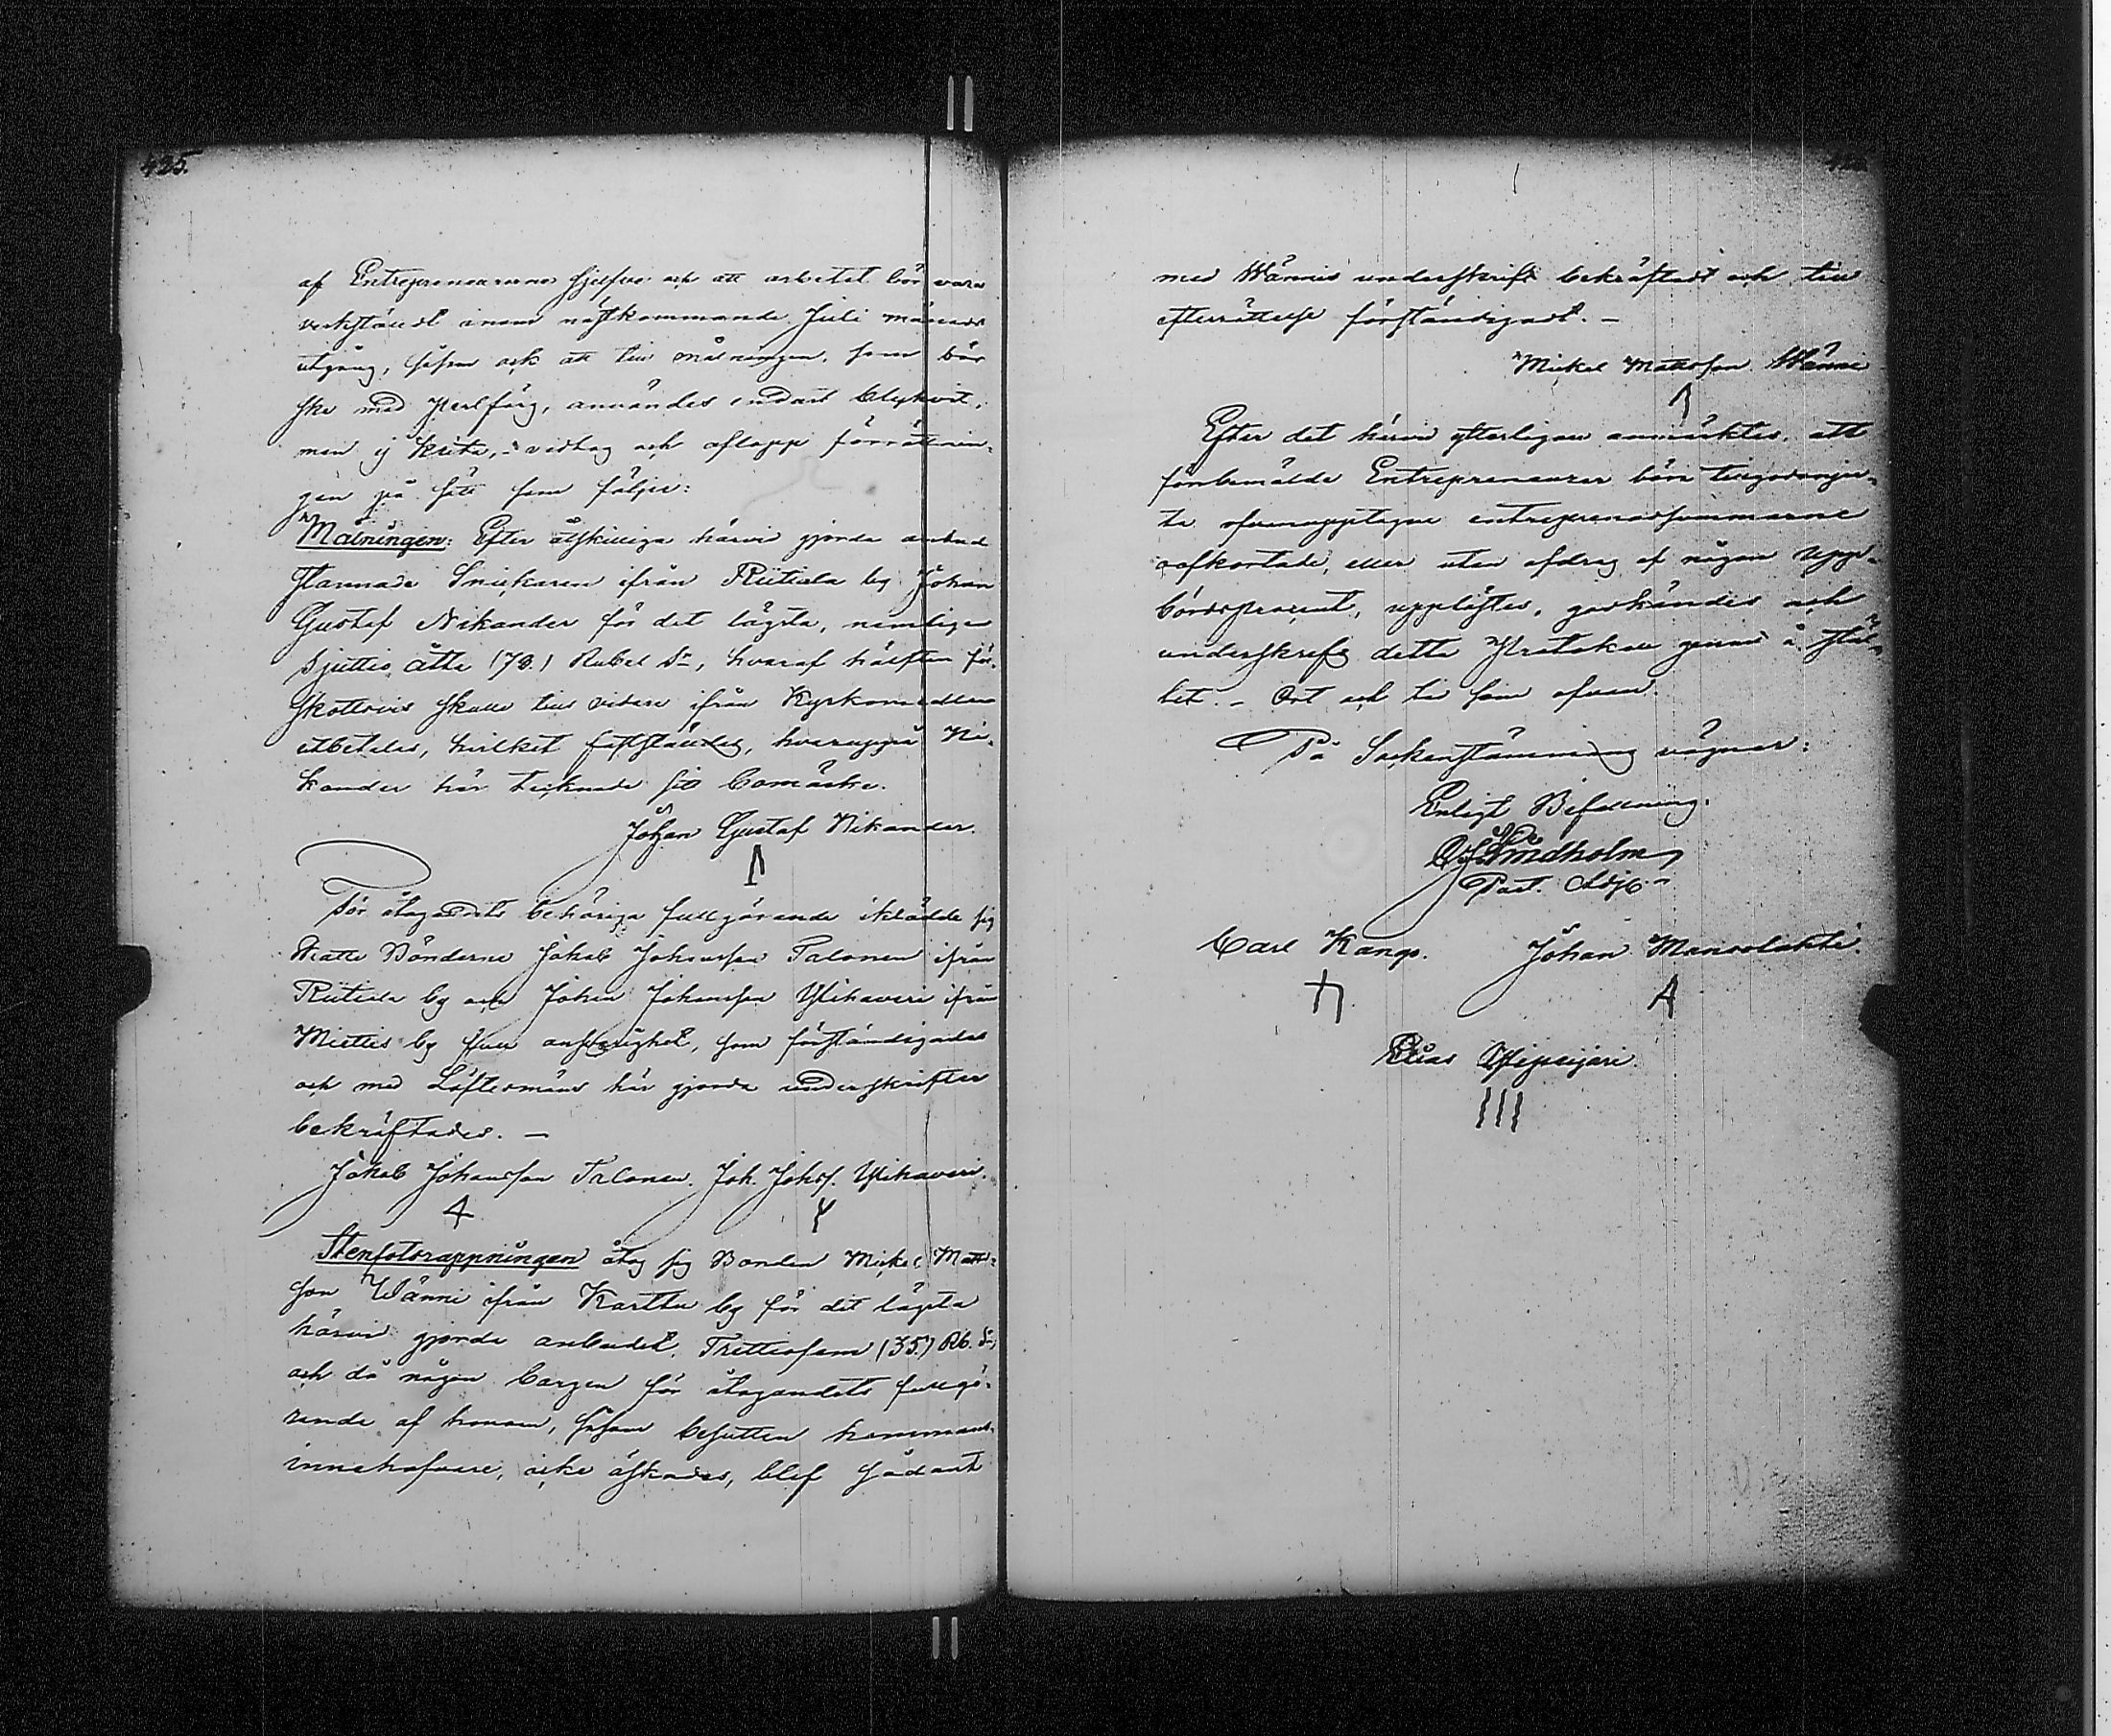 425.
af Entreprenörerne sjelfve och att arbetet bör vara
verkstäldt inom nästkommande Juli månads
utgång, såsom ock att till målningen, som bör
ske med perlfärg, användes endast blyhvit,
men ej krita, - vidtog och aflopp förrättnin-
gen på sätt som följer:
Målningen: Efter åtskilliga härvid gjorda anbud
stannade Snickaren ifrån Riitiala by Johan
Gustaf Nikander för det lägsta, nemligen
Sjuttio åtta (78.) Rubel Sr, hvaraf hälften för-
skottsvis skulle tills vidare ifrån Kyrkomedlen
utbetalas, hvilket fastställdes, hvaruppå Ni-
kander här tecknade sitt bomärke.
Johan Gustaf Nikander.
För åtagandets behöriga fullgörande iklädde sig
Bönderne Jakob Johansson Talonen ifrån
Riitiala by och Johan Johansson Ylihaveri ifrån
Miettis by full ansvarighet, som förständigades
och med Löftesmäns här gjorda underskrifter
bekräftades. -
Jakob Johansson Talonen. Joh. Johss. Ylihaveri.
Stenfotsrappningen åtog sig Bonden Mickel Matts-
son Wänni ifrån Karttu by för det lägsta
härvid gjorda anbudet, Trettiofem (35.) Rb. Sr,
och då någon borgen för åtagandets fullgö-
rande af honom, såsom besutten hemmans-
innehafvare, icke äskades, blef sådant
med Wännis underskrift bekräftadt och till
efterrättelse förständigadt. -
Mickel Mattsson Wänni
Efter det härvid ytterligare anmärktes, att
förbemälde Entreprenörer böra tillgodonju-
ta ofvanupptagne entreprenadsummorne
oafkortade, eller utan afdrag af någon upp-
bördsprocent, upplästes, godkändes och
underskrefs detta Protokoll genast å stäl-
let. - Ort och tid som ofvan.
På Sockenstämmans vägnar:
Enligt Befallning.
Lindholm
Past. Adj.
Carl Kango. Johan
Elias